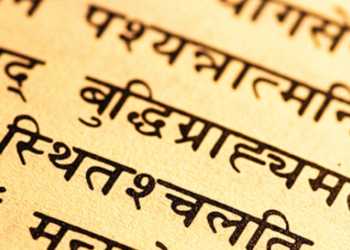 योगसे
पश्यन्नात्मनि
द् बुद्धिग्राह्यम
स्थितश्चलति